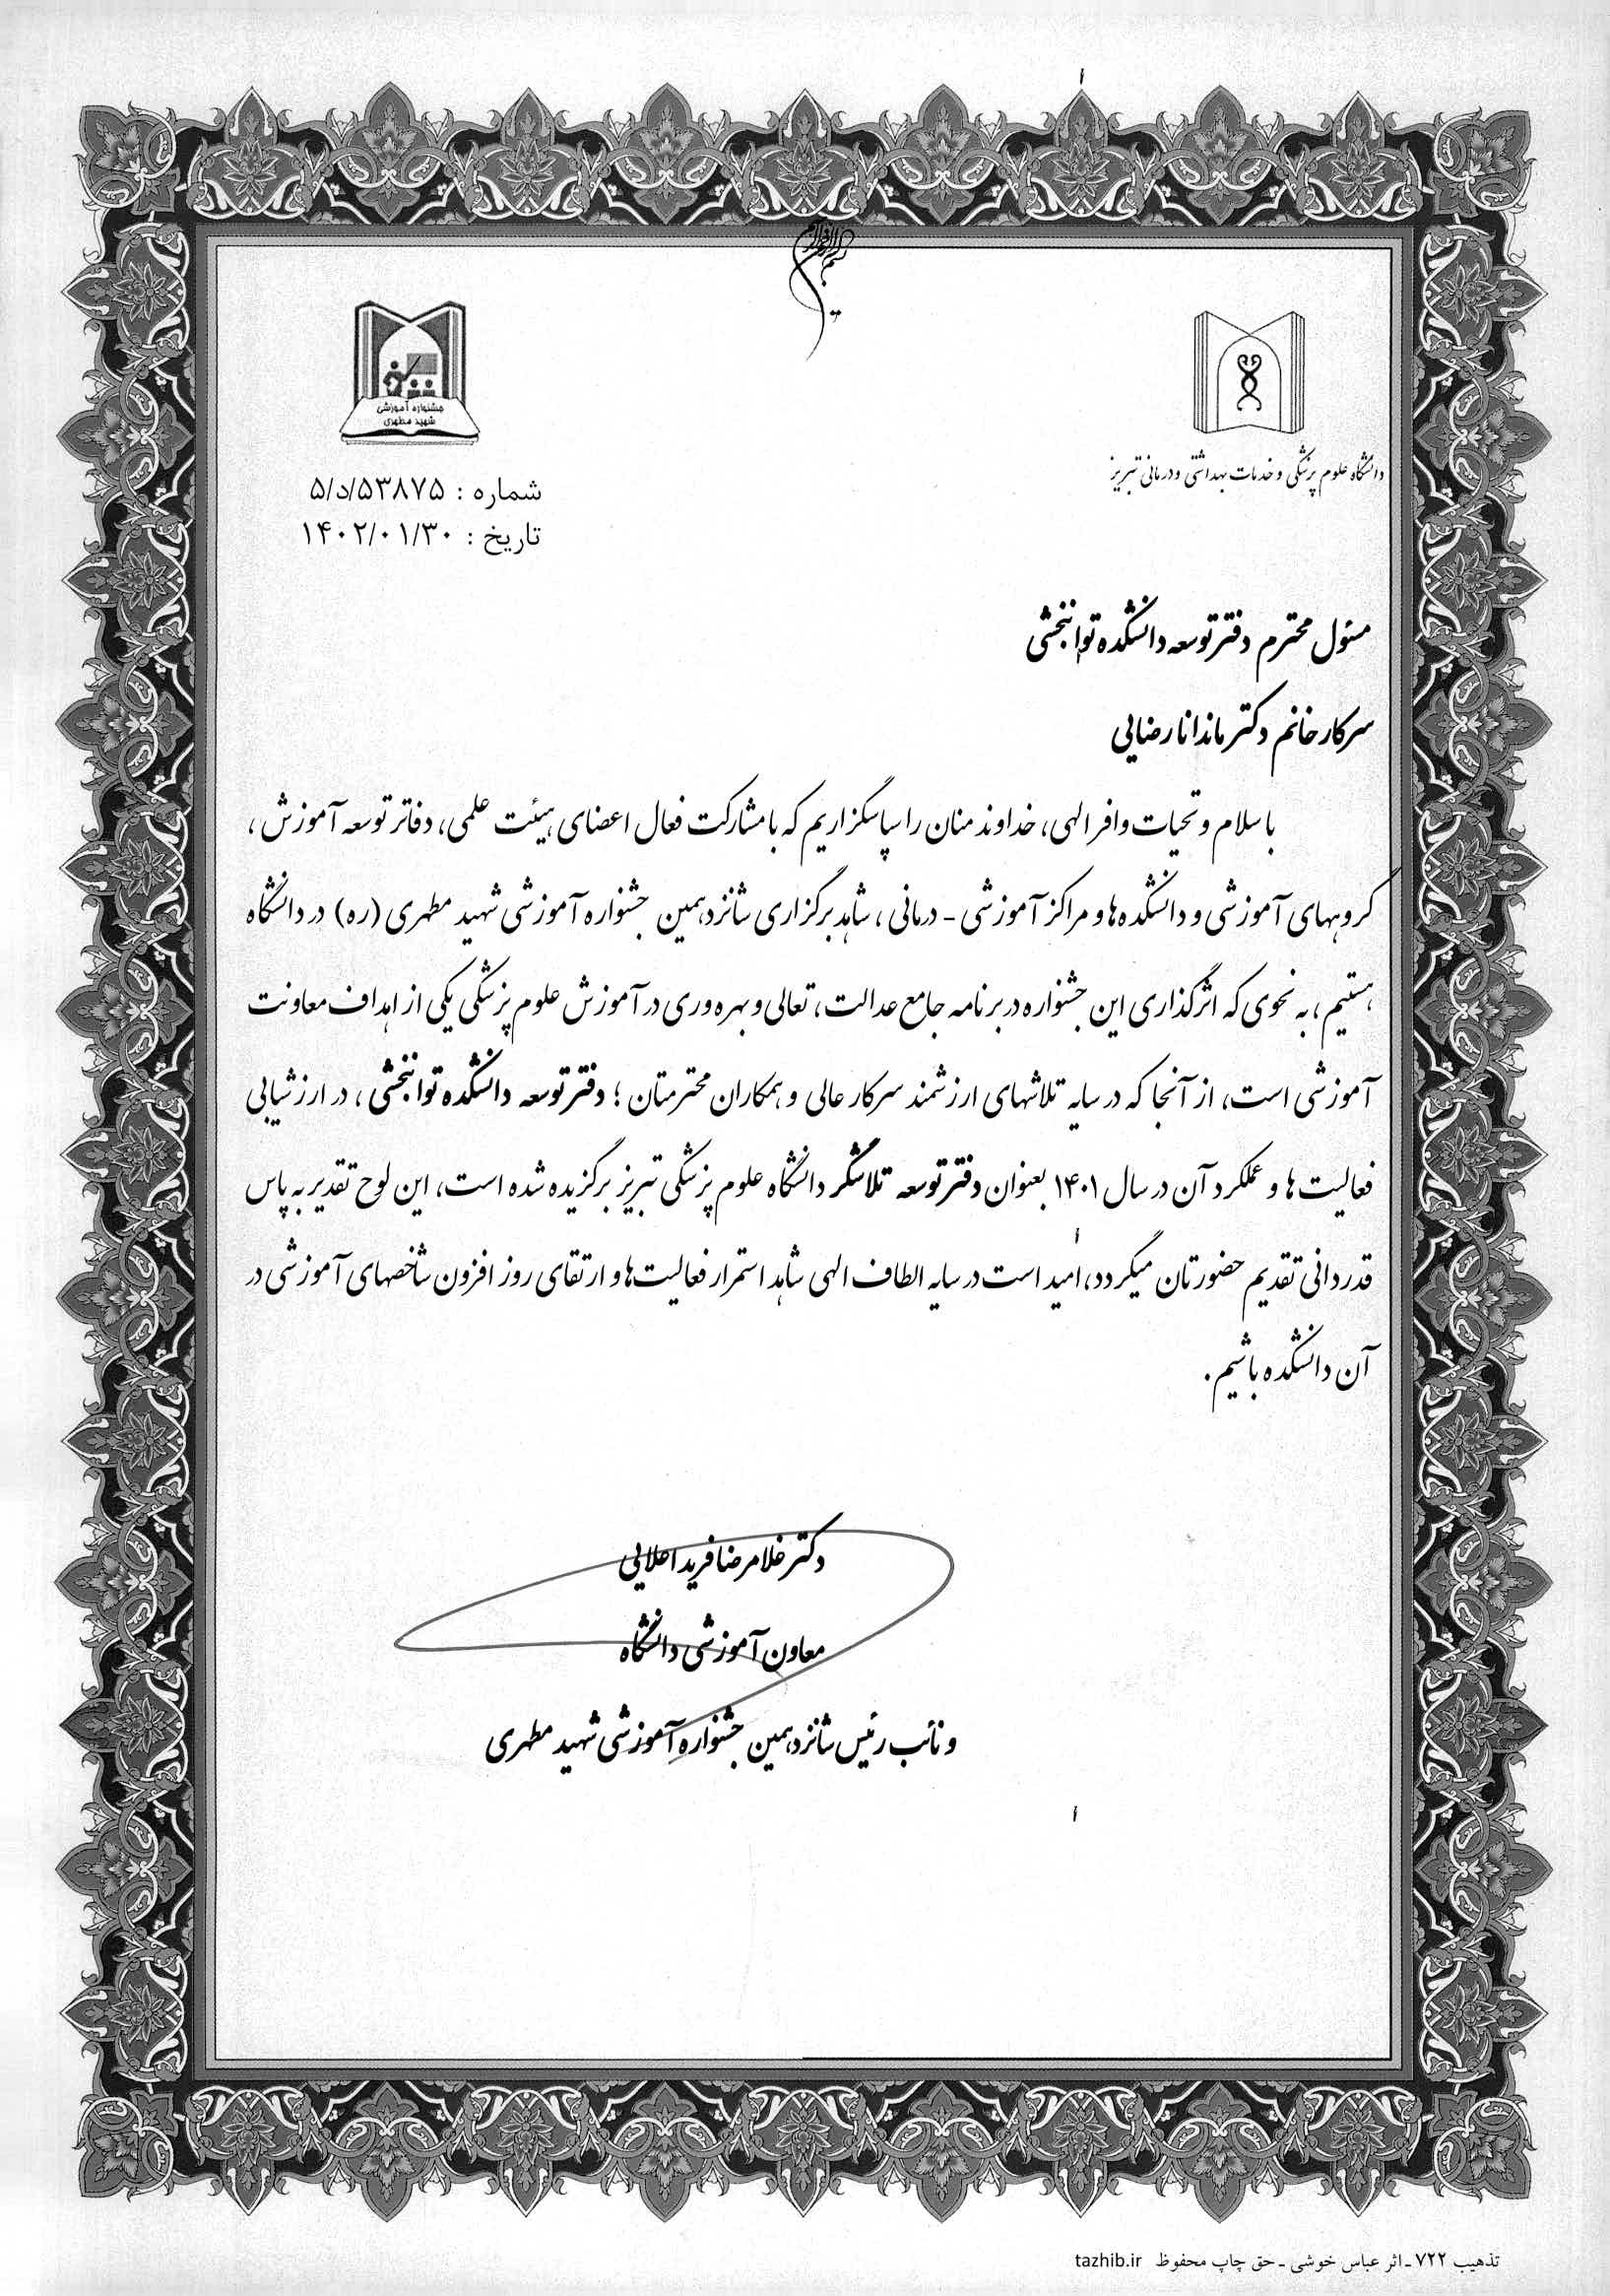 بسم الله الرحمن الرحیم
جشنواره آموزشی
شهید مطهری
دانشگاه علوم پزشکی و خدمات بهداشتی و درمانی تبریز
شماره : ۵/د/۵۳۸۷۵
تاریخ : ۱۴۰۲/۰۱/۳۰
مسئول محترم دفتر توسعه دانشکده توانبخشی
سرکار خانم دکتر ماندانا رضایی
با سلام و تحیات وافر الهی، خداوند منان را سپاسگزاریم که با مشارکت فعال اعضای هیئت علمی، دفاتر توسعه آموزش ،
گروههای آموزشی و دانشکده ها و مراکز آموزشی - درمانی ، شاهد برگزاری شانزدهمین جشنواره آموزشی شهید مطهری (ره) در دانشگاه
هستیم ، به نحوی که اثرگذاری این جشنواره در برنامه جامع عدالت، تعالی و بهره وری در آموزش علوم پزشکی یکی از اهداف معاونت
آموزشی است، از آنجا که در سایه تلاشهای ارزشمند سرکار عالی و همکاران محترمتان ؛ دفتر توسعه دانشکده توانبخشی ، در ارزشیابی
فعالیت ها و عملکرد آن در سال ۱۴۰۱ بعنوان دفتر توسعه تلاشگر دانشگاه علوم پزشکی تبریز برگزیده شده است، این لوح تقدیر به پاس
قدردانی تقدیم حضورتان میگردد، امید است در سایه الطاف الهی شاهد استمرار فعالیت ها و ارتقای روز افزون شاخصهای آموزشی در
آن دانشکده باشیم.
دکتر غلامرضا فرید اعلایی
معاون آموزشی دانشگاه
و نائب رئیس شانزدهمین جشنواره آموزشی شهید مطهری
تذهیب ۷۲۲ ـ اثر عباس خوشی ـ حق چاپ محفوظ tazhib.ir